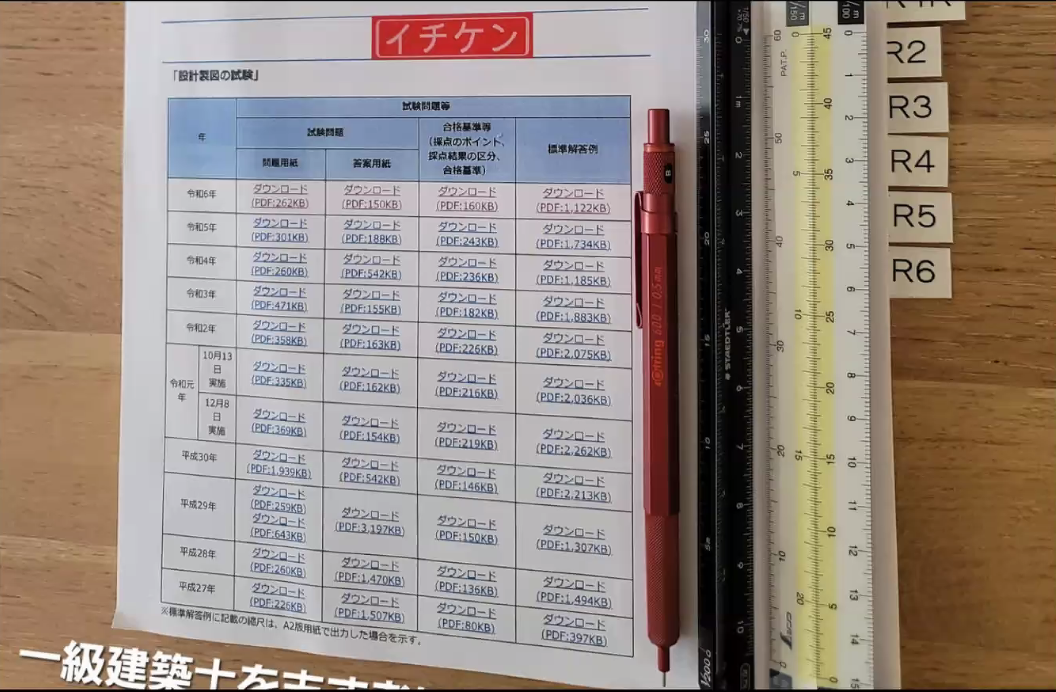 イチケン
「設計製図の試験」
年
試験問題等
試験問題
合格基準等
(採点のポイント、
採点結果の区分、
合格基準)
標準解答例
問題用紙
答案用紙
令和6年
ダウンロード
(PDF:262KB)
ダウンロード
(PDF:150KB)
ダウンロード
(PDF:160KB)
ダウンロード
(PDF:1,122KB)
令和5年
ダウンロード
(PDF:301KB)
ダウンロード
(PDF:188KB)
ダウンロード
(PDF:243KB)
ダウンロード
(PDF:1,734KB)
令和4年
ダウンロード
(PDF:260KB)
ダウンロード
(PDF:542KB)
ダウンロード
(PDF:236KB)
ダウンロード
(PDF:1,185KB)
令和3年
ダウンロード
(PDF:471KB)
ダウンロード
(PDF:155KB)
ダウンロード
(PDF:182KB)
ダウンロード
(PDF:1,883KB)
令和2年
ダウンロード
(PDF:358KB)
ダウンロード
(PDF:163KB)
ダウンロード
(PDF:226KB)
ダウンロード
(PDF:2,075KB)
令和元
年
10月13
日
実施
ダウンロード
(PDF:335KB)
ダウンロード
(PDF:162KB)
ダウンロード
(PDF:216KB)
ダウンロード
(PDF:2,036KB)
12月8
日
実施
ダウンロード
(PDF:369KB)
ダウンロード
(PDF:154KB)
ダウンロード
(PDF:219KB)
ダウンロード
(PDF:2,262KB)
平成30年
ダウンロード
(PDF:1,939KB)
ダウンロード
(PDF:542KB)
ダウンロード
(PDF:146KB)
ダウンロード
(PDF:2,213KB)
平成29年
ダウンロード
(PDF:259KB)
ダウンロード
(PDF:643KB)
ダウンロード
(PDF:3,197KB)
ダウンロード
(PDF:150KB)
ダウンロード
(PDF:1,307KB)
平成28年
ダウンロード
(PDF:260KB)
ダウンロード
(PDF:1,470KB)
ダウンロード
(PDF:136KB)
ダウンロード
(PDF:1,494KB)
平成27年
ダウンロード
(PDF:226KB)
ダウンロード
(PDF:1,507KB)
ダウンロード
(PDF:80KB)
ダウンロード
(PDF:397KB)
※標準解答例に記載の縮尺は、A2版用紙で出力した場合を示す。
一級建築士を
rotring 600 / 0.5 mm
STAEDTLER
PAT.P.
R2
R3
R4
R5
R6